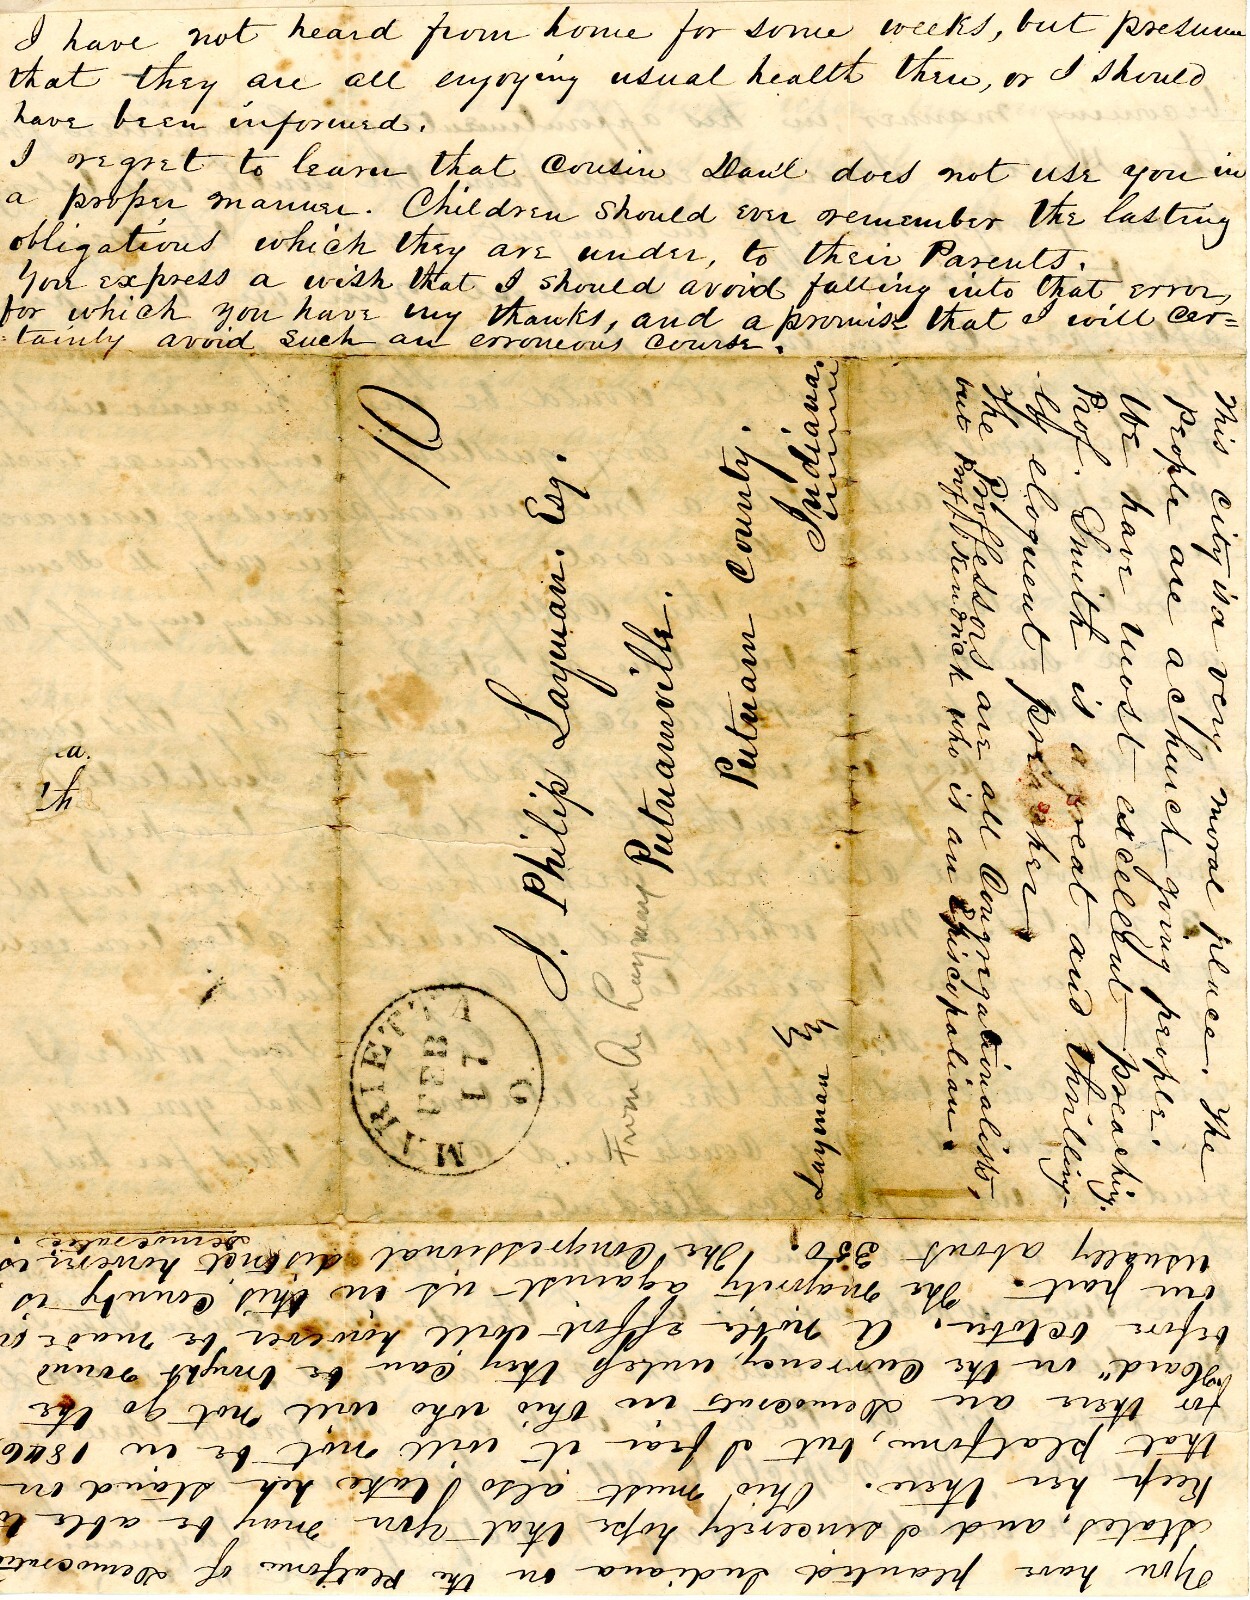 I have not heard from home for some weeks, but presume
that they are all enjoying usual health there, or I should
have been informed.
I regret to learn that cousin Dan'l does not use you in
a proper manner. Children should ever remember the lasting
obligations which they are under, to their Parents.
You express a wish that I should avoid falling into that error,
for which you have my thanks, and a promise that I will cer=
=tainly avoid such an erroneous course.
10
J. Philip Layman. Esq.
Putnamville.
Putnam County.
Indiana.
From A. Layman
MARIETTA O
FEB
17
Layman
This city is a very moral place. The
people are a church going people.
We have most excellent preaching.
Prof. Smith is a great and thrilling-
ly eloquent preacher
The Professors are all Congregationalists,
but Prof. Kendrick who is an Episcopalian.
You have planted Indiana on the platform of Democratic
States, and I sincerely hope that you may be able to
Keep her there. Ohio must also take her stand on
that platform, but I fear it will not be in 1846,
for there are Democrats in Ohio who will not go the
"Hard" on the Currency, unless they can be brought round
before October. A noble effort will however be made on
our part. The majority against us in this County is
usually about 350. The Congressional district however is
Democratic.